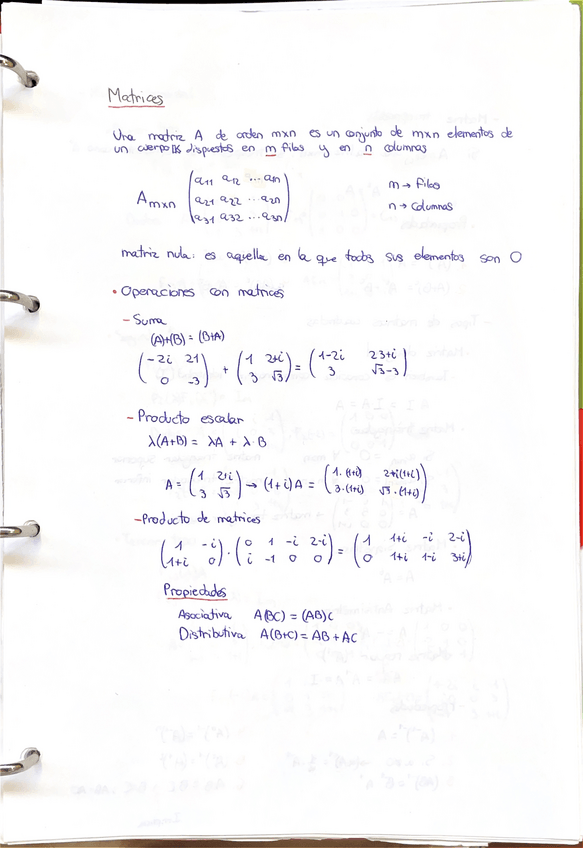 Matrices
Una matriz A de orden mxn es un conjunto de mxn elementos de
un cuerpo 𝕂 dispuestos en m filas y en n columnas
A mxn (a11 a12 ... a1n
a21 a22 ... a2n
a31 a32 ... a3n)
m → filas
n → columnas
matriz nula: es aquella en la que todos sus elementos son 0
• Operaciones con matrices
- Suma
(A)+(B) = (B+A)
(-2i 21
0 -3) + (1 2+i
3 √3) = (1-2i 23+i
3 √3-3)
- Producto escalar
λ(A+B) = λA + λ·B
A = (1 2+i
3 √3) → (1+i)A = (1·(1+i) 2+i(1+i)
3·(1+i) √3·(1+i))
- Producto de matrices
(1 -i
1+i 0) · (0 1 -i 2-i
i -1 0 0) = (1 1+i -i 2-i
0 1+i 1-i 3+i)
Propiedades
Asociativa A(BC) = (AB)C
Distributiva A(B+C) = AB + AC